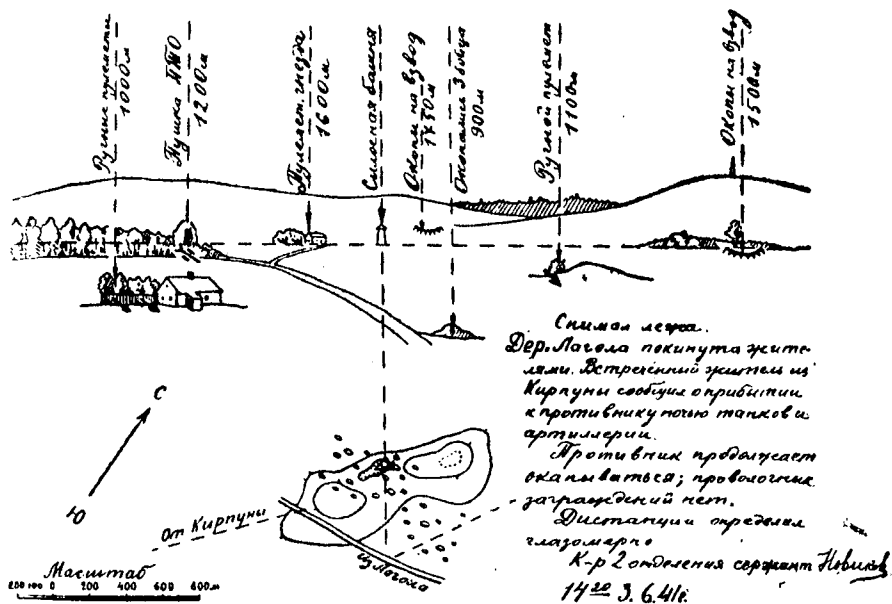 Ручные пулеметы
1000м
Пушка ПТО
1200м
Пулемет. гнезда
1600м
Силосная башня
Окопы на взвод
1750м
Окопались 3 бойца
900м
Ручной пулемет
1100м
Окопы на взвод
1500м
Снимал лежа.
Дер. Лагола покинута жите-
лями. Встреченный житель из
Кирпуны сообщил о прибытии
к противнику ночью танков и
артиллерии.
Противник продолжает
окапываться; проволочных
заграждений нет.
Дистанции определял
глазомерно
К-р 2 отделения сержант Новиков
14 20 3.6.41г.
С
Ю
От Кирпуны
из Лагола
Масштаб
200 100 0 200 400 600 800м